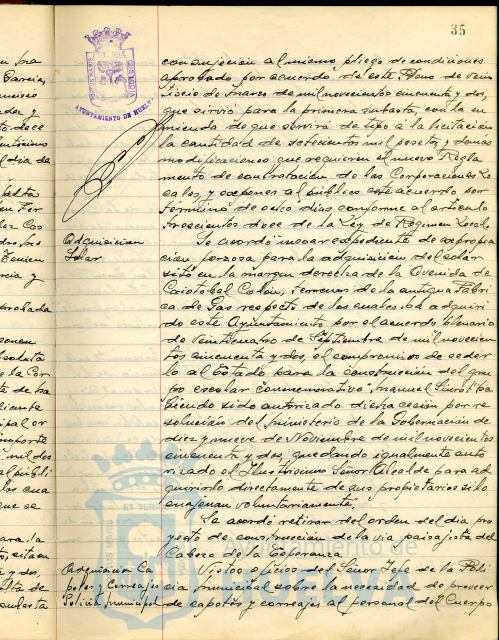 35
AYUNTAMIENTO DE HUELVA
con sujeción al mismo pliego de condiciones
aprobado por acuerdo de este Pleno de vein
tiseis de Marzo de mil novecientos cincuenta y dos,
que sirvió para la primera subasta, con la en
mienda de que servirá de tipo a la licitación
la cantidad de setecientos mil pesetas, y demas
modificaciones que requieren el nuevo Regla
mento de contratación de las Corporaciones Lo
cales, y exponer al público este acuerdo por
término de ocho dias, conforme al artículo
trescientos doce de la Ley de Régimen Local.
Adquisicion
Solar
Se acordó incoar expediente de expropia
cion forzosa para la adquisicion del solar
sito en la margen derecha de la Avenida de
Cristobal Colón, terrenos de la antigua Fábri
ca de Gas respecto de los cuales ha adquiri
do este Ayuntamiento por el acuerdo plenario
de veinticuatro de Septiembre de mil novecien
tos cincuenta y dos, el compromiso de ceder
lo al Estado para la construcción del gru
po escolar conmemorativo "Manuel Siurot", ha
biendo sido autorizado dicha cesión por re
solución del Ministerio de la Gobernación de
diez y nueve de Noviembre de mil novecientos
cincuenta y dos, quedando igualmente auto
rizado el Ilustrísimo Señor Alcalde para ad
quirirlo directamente de sus propietarios si lo
enajenan voluntariamente.
Se acordó retirar del orden del día pro
yecto de construcción de la via paisajista del
Cabezo de la Esperanza.
Adquisicion Ca
potes y Correajes
Policia Municipal
Visto oficio del Señor Jefe de la Poli
cia Municipal sobre la necesidad de proveer
de capotes y correajes al personal del Cuerpo
Ayuntamiento de
HUELVA